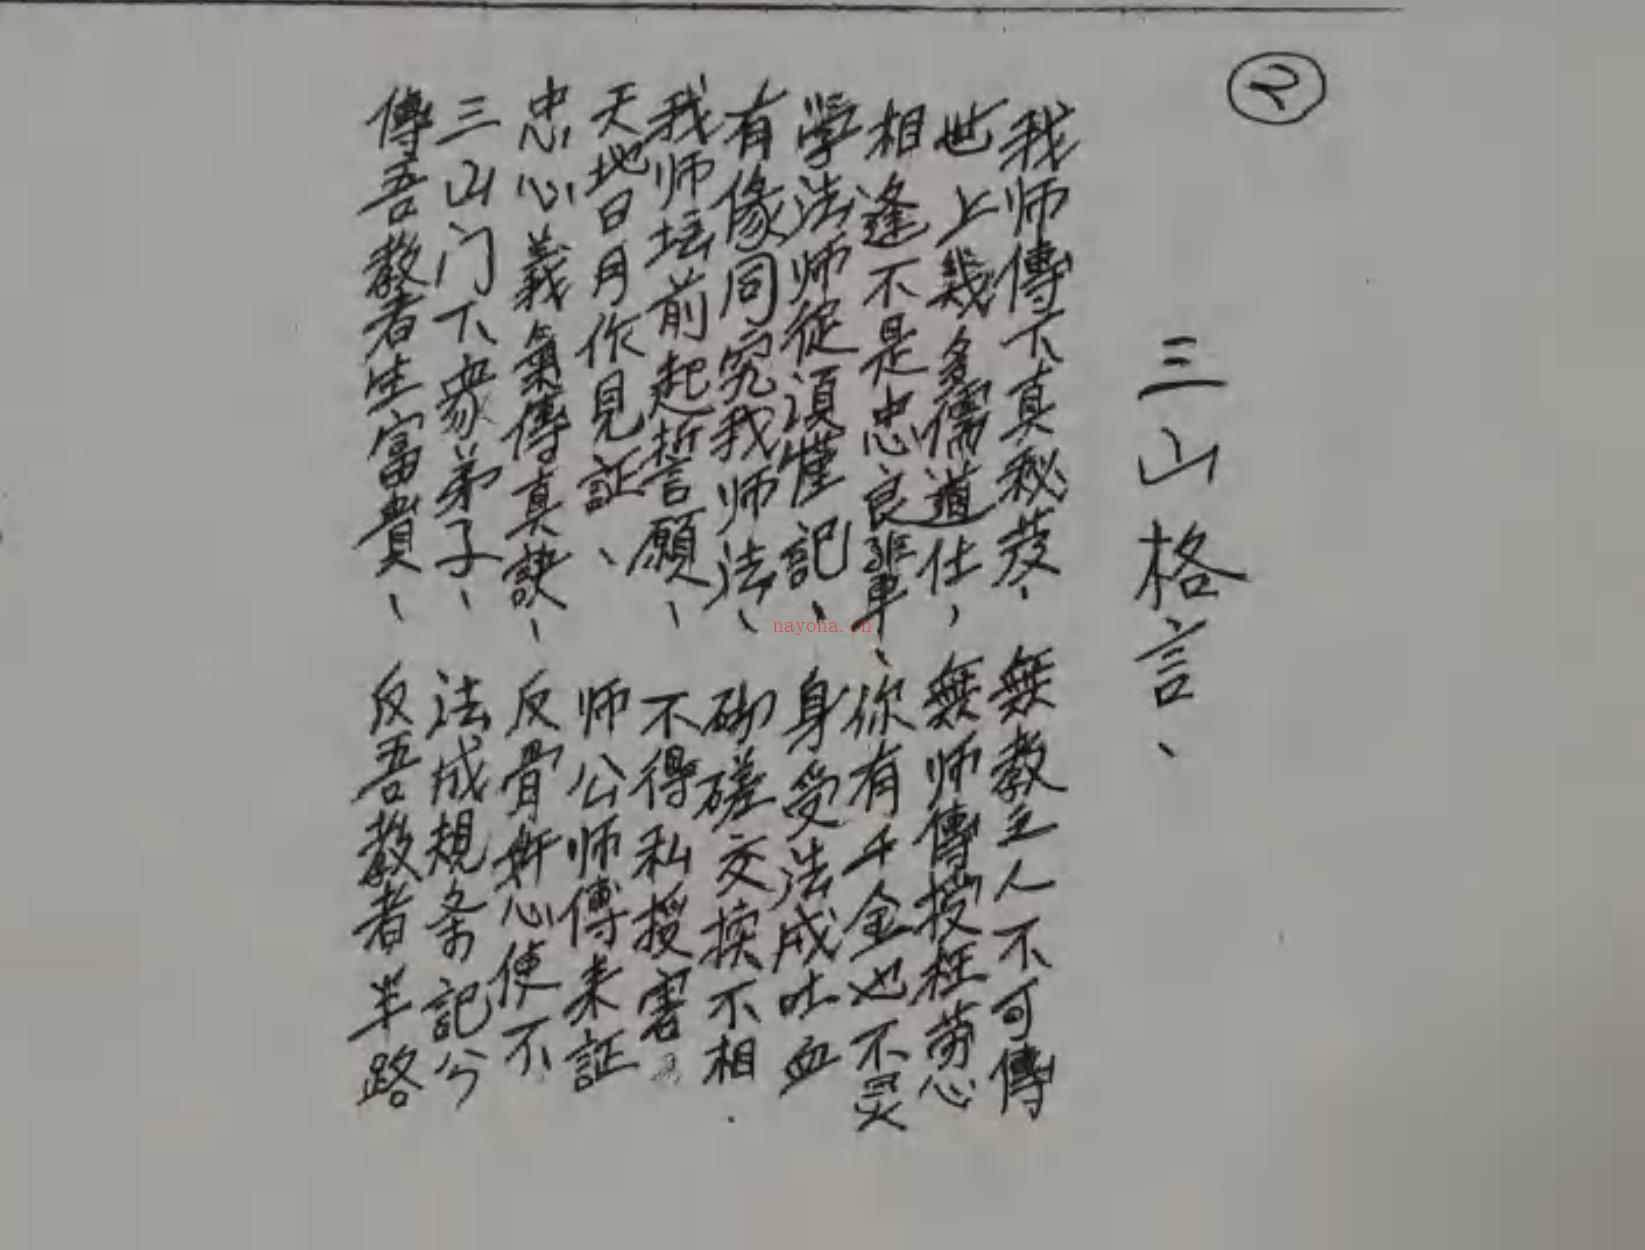 2
三山格言、
我师傳下真秘芨、無教主人不可傳
世上幾多儒道仕，無师傳授枉劳心
相逢不是忠良輩、你有千金也不灵
學法师徒須慬記、身受法成吐血
有像同究我师法、砌磋交换不相
我师坛前起誓言願、不得私授害
天地日月作見証、师公师傅来証
忠心義氣傳真訣、反骨奸心使不
三山门下衆弟子、法成規条記分
傳吾教者生富貴、反吾教者半路
nayona.cn